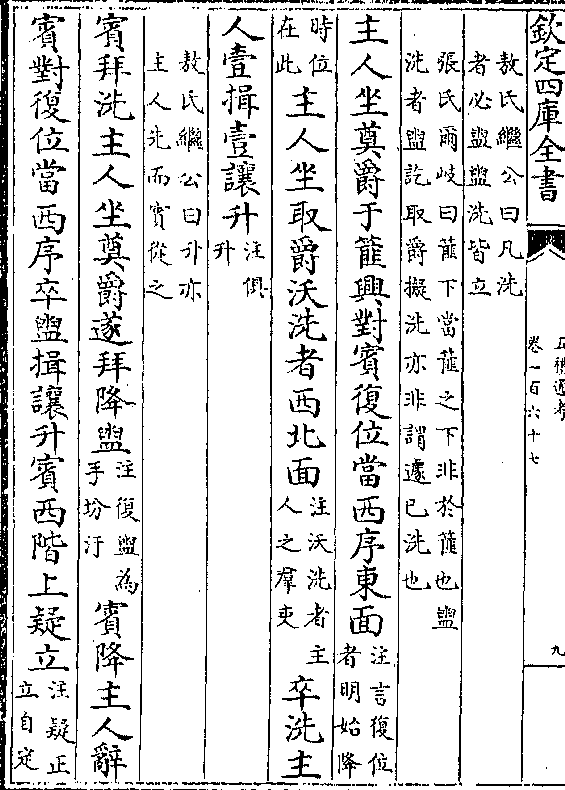 欽定四庫全書
五禮通考
卷一百六十七
九
敖氏繼公曰凡洗
者必盥盥洗皆立
張氏爾岐曰篚下當篚之下非於篚也盥
洗者盥訖取爵擬洗亦非謂遽已洗也
主人坐奠爵于篚興對賓復位當西序東面
注言復位
者明始降
時位
在此
主人坐取爵沃洗者西北面
注沃洗者主
人之羣吏
卒洗主
人壹揖壹讓升
注俱
升
敖氏繼公曰升亦
主人先而賓從之
賓拜洗主人坐奠爵遂拜降盥
注復盥為
手坋汙
賓降主人辭
賓對復位當西序卒盥揖讓升賓西階上疑立
注疑正
立自定